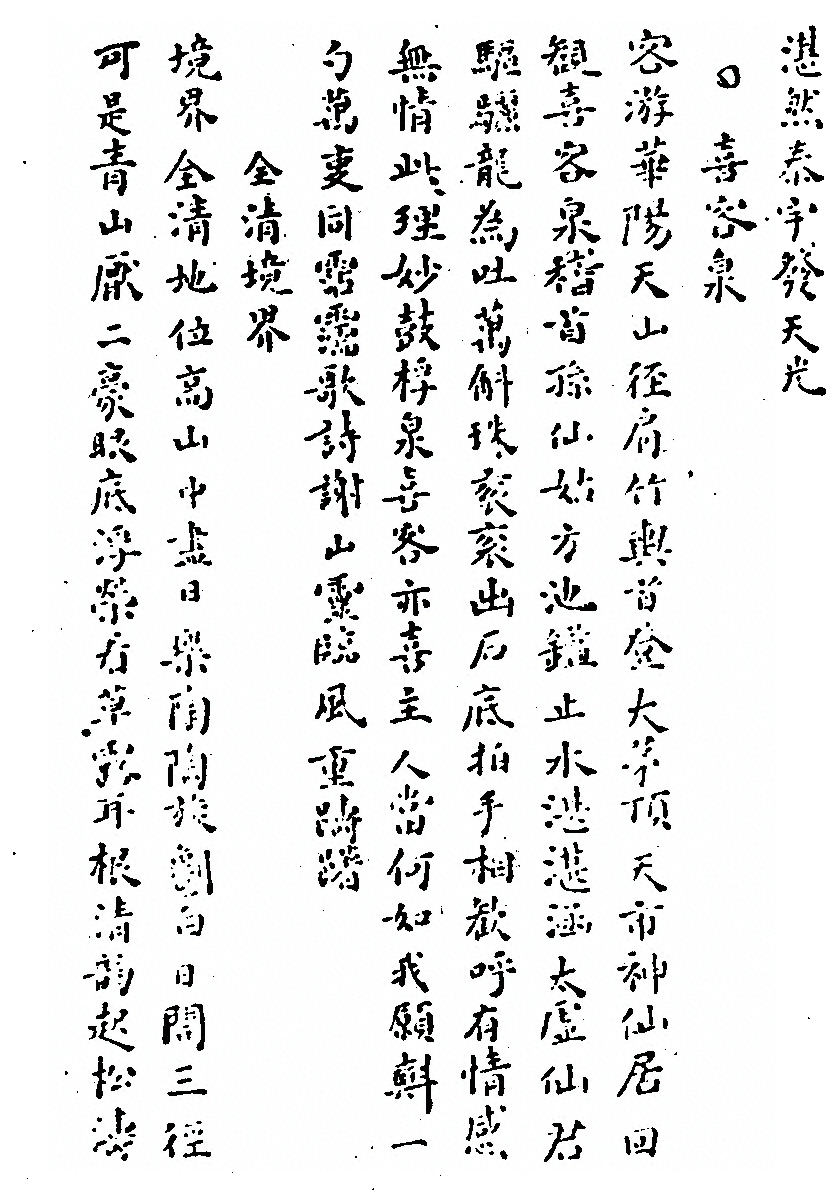 湛然泰宇發天光
○喜客泉
客游華陽天山徑肩竹輿首登大茅頂天市神仙居回
觀喜客泉稽首孫仙姑方池鑑止水湛湛涵太虛仙君
驅驪龍為吐萬斛珠袞袞出石底拍手相歡呼有情感
無情此理妙鼓桴泉喜客亦喜主人當何如我願㪺一
勺萬叓同霑濡歌詩謝山靈臨風重躊躇
全清境界
境界全清地位高山中盡日樂陶陶旋劚白日闢三徑
可是青山厭二豪眼底浮榮有草露耳根清韻起松濤